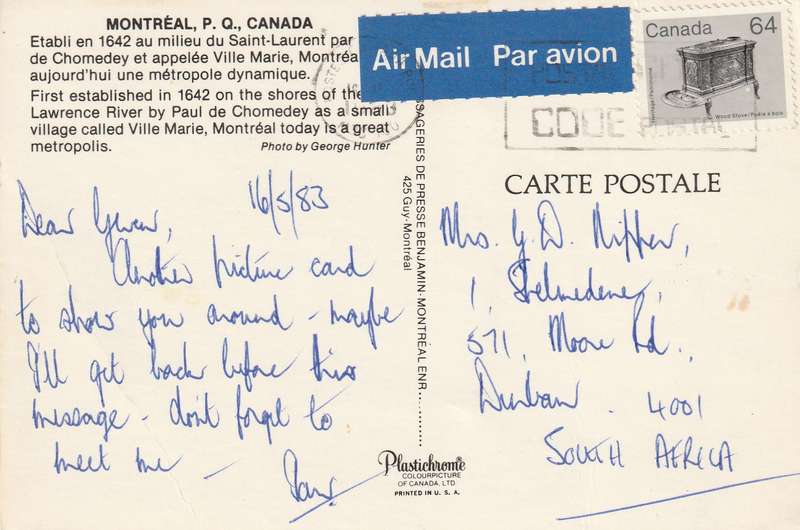 MONTRÉAL, P. Q., CANADA
Etabli en 1642 au milieu du Saint-Laurent par
de Chomedey et appelée Ville Marie, Montréa
aujourd'hui une métropole dynamique.
First established in 1642 on the shores of the
Lawrence River by Paul de Chomedey as a small
village called Ville Marie, Montréal today is a great
metropolis.
Photo by George Hunter
Air Mail Par avion
Canada 64
Wood Stove/Poêle à bois
CODE POSTAL
16/5/83
Dear Gwen,
Another picture card
to show you around - maybe
I'll get back before this
message - don't forget to
meet me -
SSAGERIES DE PRESSE BENJAMIN-MONTREAL ENR.
425 Guy-Montréal
Plastichrome
COLOURPICTURE
OF CANADA, LTD.
PRINTED IN U. S. A.
CARTE POSTALE
Mrs. G. D. Nipper,
1,
571, Moore Rd.,
Durban. 4001
SOUTH AFRICA